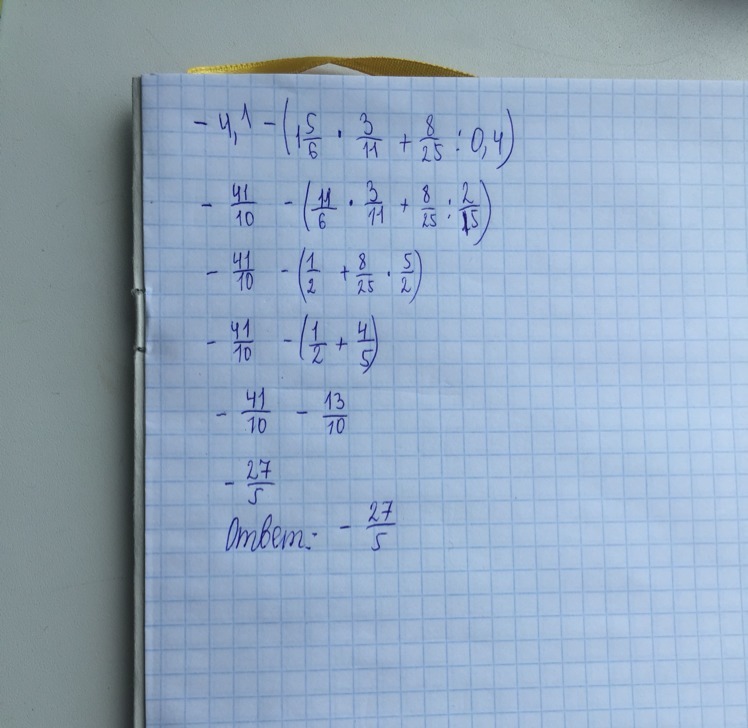 - 4,1 - (1 5/6 · 3/11 + 8/25 : 0,4)
- 41/10 - (11/6 · 3/11 + 8/25 : 2/5)
- 41/10 - (1/2 + 8/25 · 5/2)
- 41/10 - (1/2 + 4/5)
- 41/10 - 13/10
- 27/5
Ответ: - 27/5